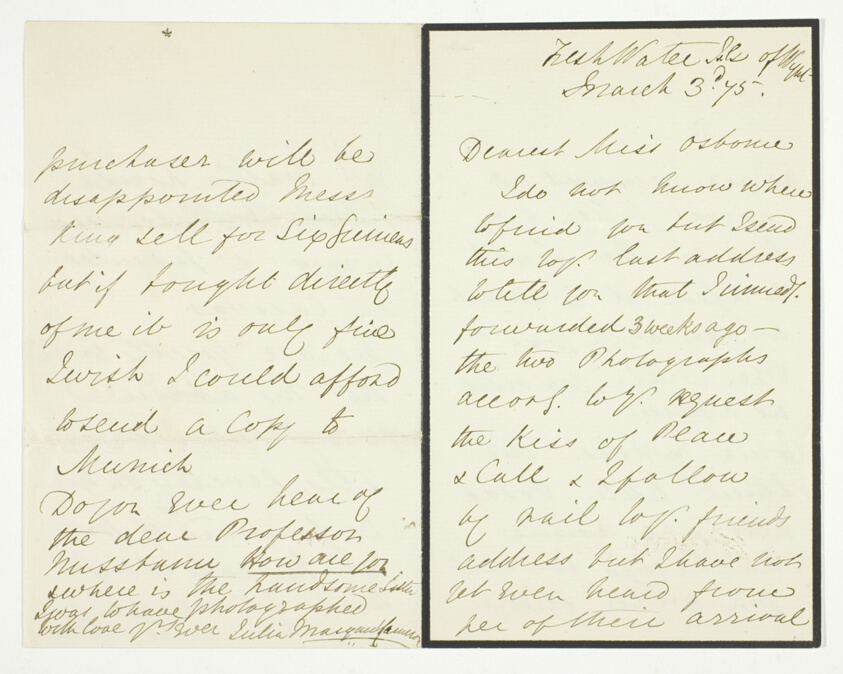 Fresh Water Isle of Wight
March 3d 75.
Dearest Miss Osborne
I do not know where
to find you but I send
this to yr. last address
to tell you that I immedy.
forwarded 3 weeks ago —
the two Photographs
accorg. to yr. request
the Kiss of Peace
& Call & I follow
by rail to yr. friends
address but I have not
yet even heard from
her of their arrival
*
purchaser will be
disappointed Messrs
King sell for Six Guineas
but if bought directly
of me it is only five
I wish I could afford
to send a Copy to
Munich
Do you Ever hear of
the dear Professor
Nussbaum How are you
& where is the handsome Sister
I was to have photographed
with love yrs. Ever Julia Margaret Cameron